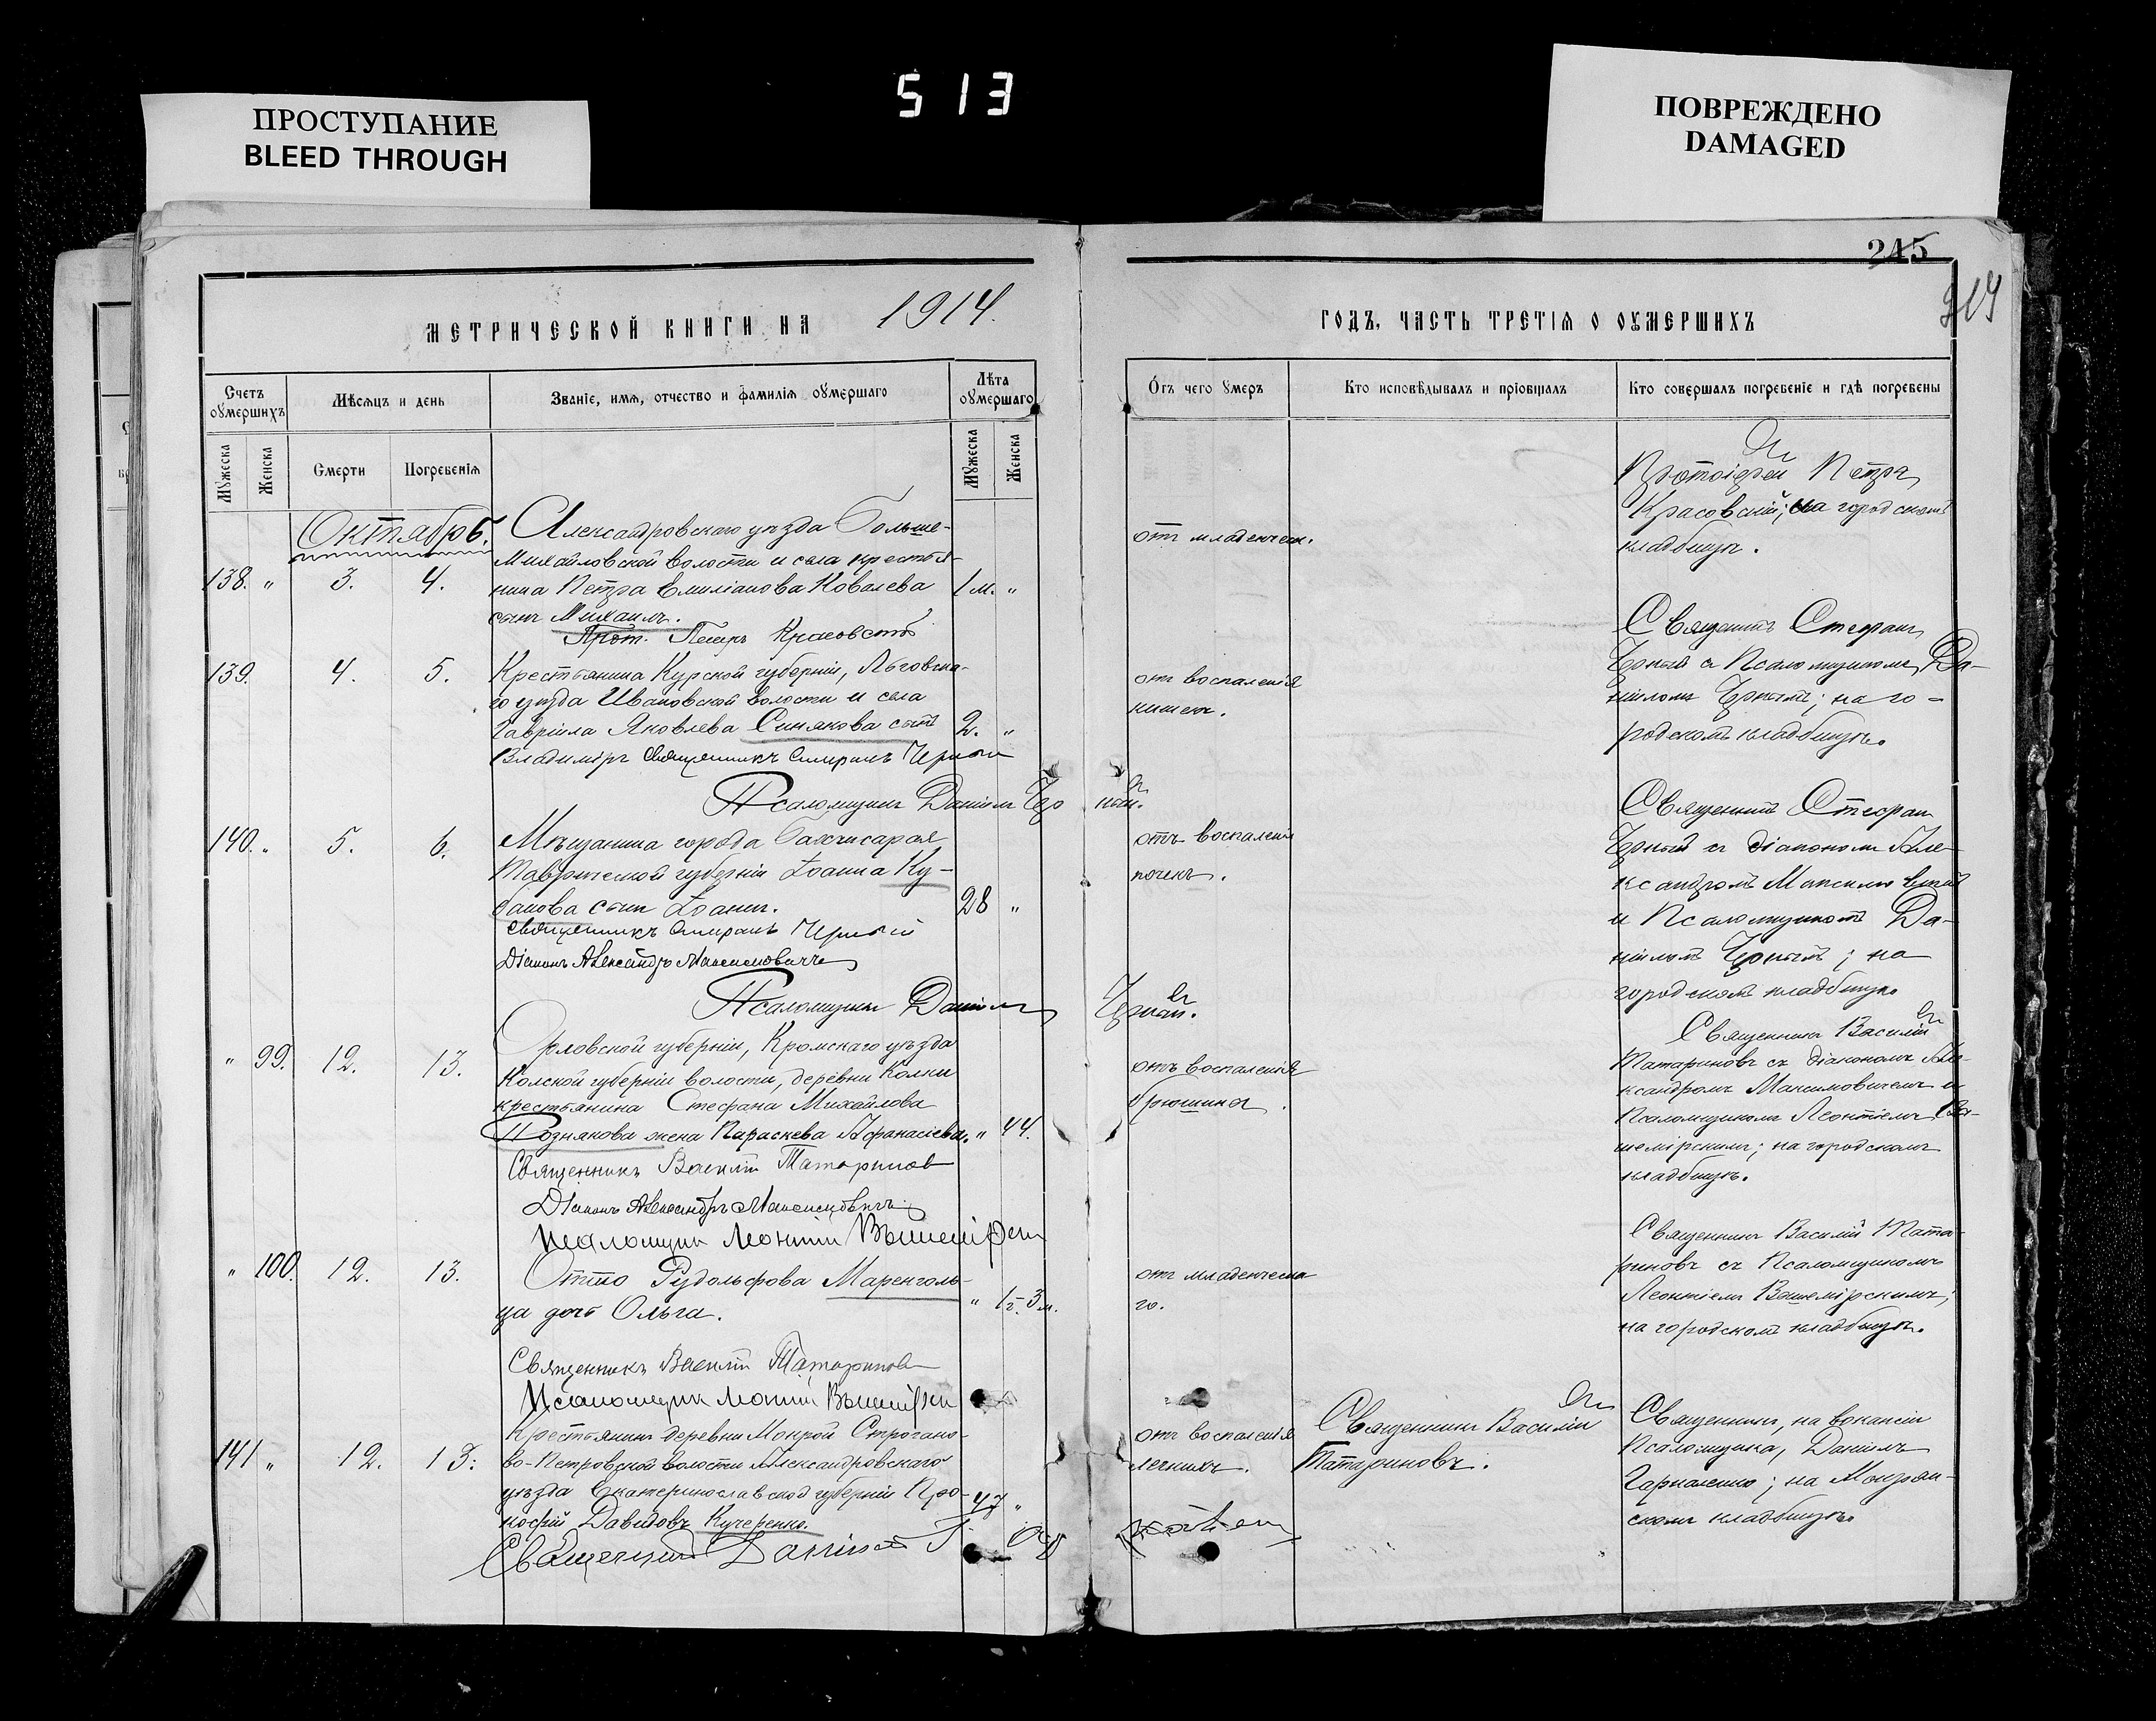 513
ПРОСТУПАНИЕ
BLEED THROUGH
ПОВРЕЖДЕНО
DAMAGED
МЕТРИЧЕСКОЙ КНИГИ НА 1914.
Счетъ оумершихъ
Мужеска
Женска
Мѣсяцъ и день
Смерти
Погребенія
Званіе, имя, отчество и фамилія оумершаго
Лѣта оумершаго
Мужеска
Женска
Октябрь.
Александровскаго уѣзда Больше-
Михайловской волости и села крестья-
138. " 3. 4. нина Петра Емиліанова Ковалева 1 м. "
сынъ Михаилъ.
Прот. Петръ Красовскій
139. 4. 5. Крестьянина Курской губерніи, Льговска-
го уѣзда Ивановской волости и села
Гавріила Яковлева Синякова сынъ 2. "
Владиміръ Священникъ Стефанъ Черный
Псаломщикъ Даніилъ Чер ный.
140. " 5. 6. Мѣщанина города Бахчисарая
Таврической губерніи Іоанна Ку-
банова сынъ Іоаннъ. 28 "
Священникъ Стефанъ Черный
Діаконъ Александръ Максимовичъ
Псаломщикъ Даніилъ Черный.
" 99. 12. 13. Орловской губерніи, Кромскаго уѣзда
губерніи волости, деревни
крестьянина Стефана Михайлова
Познякова жена Параскева Афанасіева. " 44.
Священникъ Василій Татариновъ
Діаконъ Александръ Максимовичъ
Псаломщикъ Леонтій
" 100. 12. 13. Отто Рудольфова Маренголь-
ца дочь Ольга. " 1 г. 3 м.
Священникъ Василій Татариновъ
Псаломщикъ Леонтій
Крестьянинъ деревни Мокрой Строгано-
141 " 12. 13. во-Петровской волости Александровскаго
уѣзда Екатеринославской губерніи Про-
кофій Давидовъ Кучеренко. 47 "
Священникъ Даніилъ
245
ГОДЪ, ЧАСТЬ ТРЕТІЯ О ОУМЕРШИХЪ
Отъ чего умеръ
Кто исповѣдывалъ и пріобщалъ
Кто совершалъ погребеніе и гдѣ погребены
отъ младенческ.
Протоіерей Петръ
Красовскій; на городскомъ
кладбищѣ.
отъ воспаленія
кишекъ.
Священникъ Стефанъ
Черный съ Псаломщикомъ Да-
ніиломъ Чернымъ; на го-
родскомъ кладбищѣ.
отъ воспаленія
почекъ.
Священникъ Стефанъ
Черный съ діакономъ Але-
ксандромъ Максимовичемъ
и Псаломщикомъ Да-
ніиломъ Чернымъ; на
городскомъ кладбищѣ
отъ воспаленія
брюшины.
Священникъ Василій
Татариновъ съ діакономъ Але-
ксандромъ Максимовичемъ и
Псаломщикомъ Леонтіемъ Вы-
шемірскимъ; на городскомъ
кладбищѣ.
отъ младенческа
го.
Священникъ Василій Тата-
риновъ съ Псаломщикомъ
Леонтіемъ Вышемірскимъ;
на городскомъ кладбищѣ.
отъ воспаленія
легкихъ.
Священникъ Василій
Татариновъ.
Священникъ, на вакансіи
Псаломщика, Даніилъ
Гаркаленко; на Мокрян-
скомъ кладбищѣ.